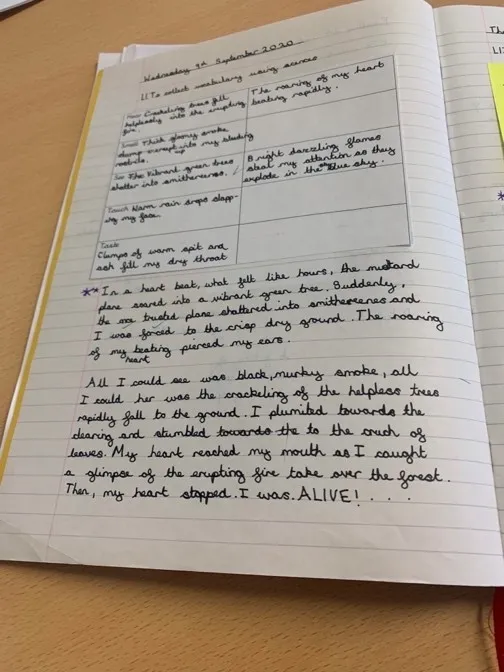 Wednesday 9th September 2020
LI: To collect vocabulary using senses
Hear Crackeling trees fall
helplessly into the erupting
fire.
The roaring of my heart
beating rapidly.
Smell Thick gloomy smoke
clump up into my bleeding
nostrils.
See The vibrant green trees
shatter into smithereens.
Bright dazzling flames
steal my attention as they
explode in the blue sky.
Touch Warm rain drops slapp-
ing my face.
Taste
Clumps of warm spit and
ash fill my dry throat
** In a heart beat, what felt like hours, the mustard
plane soared into a vibrant green tree. Suddenly,
the trusted plane shattered into smithereens and
I was forced to the crisp dry ground. The roaring
of my heart beating pierced my ears.
All I could see was black, murky smoke, all
I could her was the crackeling of the helpless trees
rapidly fall to the ground. I plumited towards the
clearing and stumbled towards the to the cruch of
leaves. My heart reached my mouth as I caught
a glimpse of the erupting fire take over the forest.
Then, my heart stopped. I was. ALIVE! . . .
Th
LI